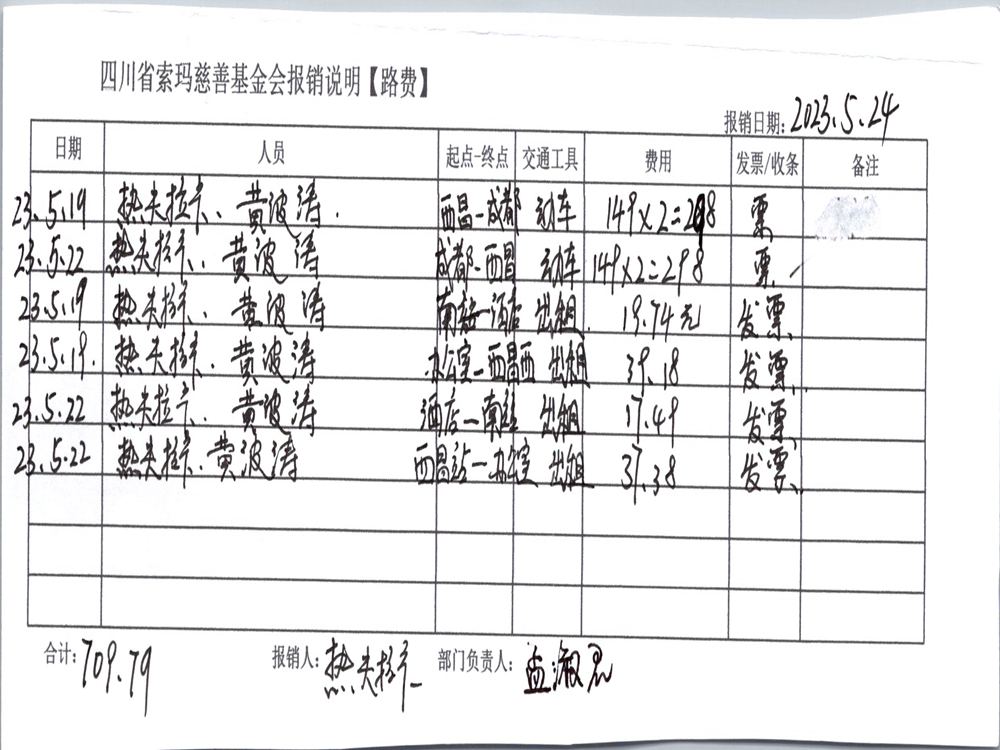 四川省索玛慈善基金会报销说明【路费】
报销日期：2023.5.24
日期 人员 起点-终点 交通工具 费用 发票/收条 备注
23.5.19 热夫拉卡、黄波涛. 西昌—成都 动车 149×2=298 票
23.5.22 热夫拉卡、黄波涛 成都—西昌 动车 149×2=298 票
23.5.19 热夫拉卡、黄波涛 南站—酒店 出租 19.74元 发票
23.5.19. 热夫拉卡、黄波涛 办公室—西昌西 出租 39.18 发票
23.5.22 热夫拉卡、黄波涛 酒店—南站 出租 17.49 发票
23.5.22 热夫拉卡、黄波涛 西昌站—办公室 出租 37.38 发票
合计：709.79 报销人：热夫拉卡 部门负责人：孟淑君